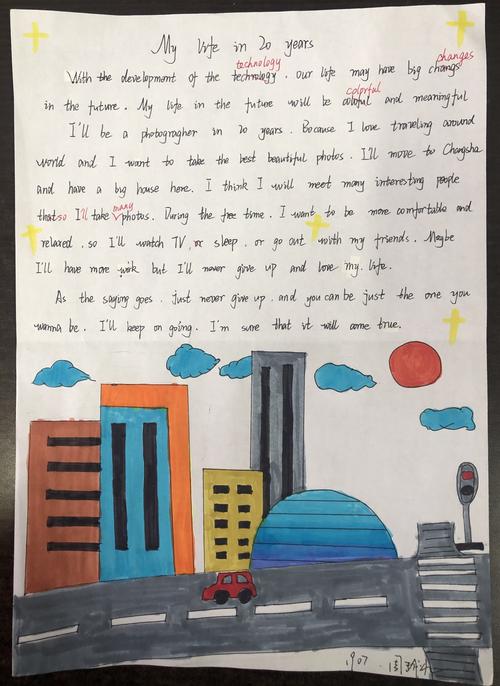 My life in 20 years
technology
changes
With the development of the technology. our life may have big changs
colorful
in the future. My life in the future will be coloful and meaningful
I'll be a photogragher in 20 years. Because I love traveling around
world and I want to take the best beautiful photos. I'll move to Changsha
and have a big house here. I think I will meet many interesting people
many
that so I'll take photos. During the free time. I want to be more comfortable and
relaxed. so I'll watch TV, or sleep. or go out with my friends. Maybe
I'll have more work but I'll never give up and love my life.
As the saying goes. just never give up. and you can be just the one you
wanna be. I'll keep on going. I'm sure that it will come true.
1907